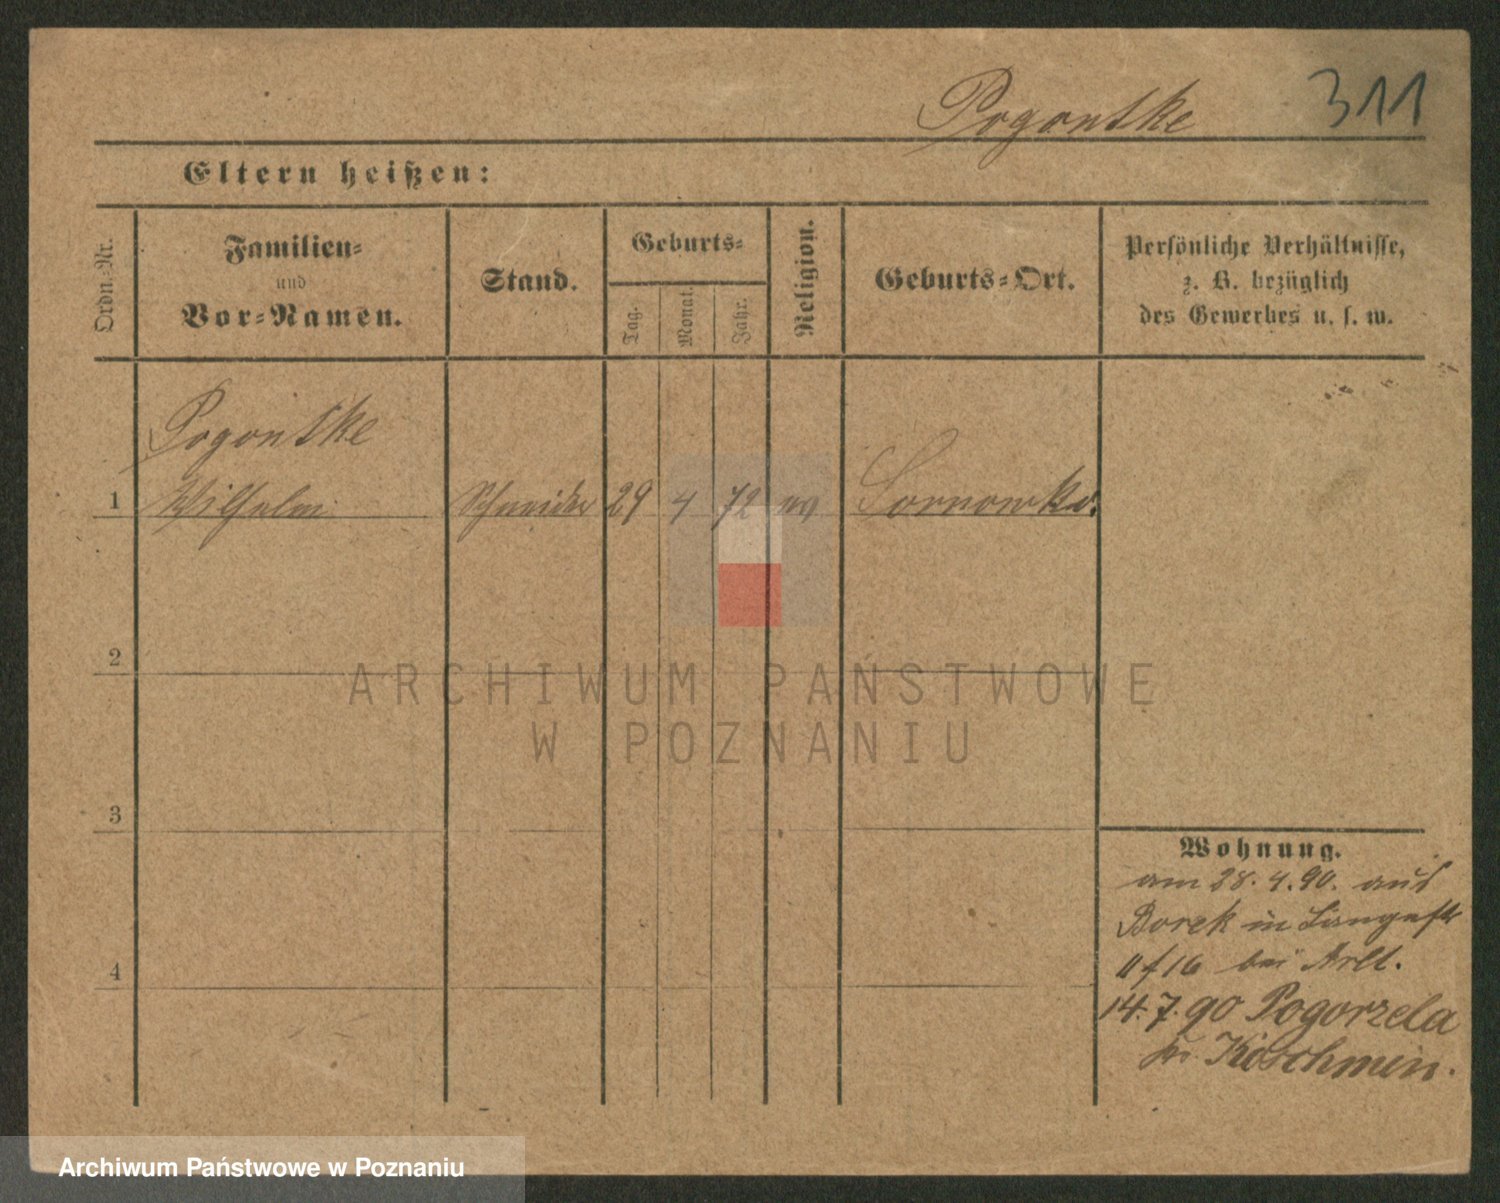 311
Pogontke
Eltern heißen:
Ordn.-Nr.
Familien-
und
Vor-Namen.
Stand.
Geburts-
Tag.
Monat.
Jahr.
Religion.
Geburts-Ort.
Persönliche Verhältnisse,
z. B. bezüglich
des Gewerbes u. s. w.
Pogontke
1 Wilhelm Schneider 29 4 72 ev
2
3
4
Wohnung.
am 28.4.90. aus
Borek in Langestr
16 bei Arlt.
14.7.90 Pogorzela
Kr. Koschmin.
ARCHIWUM PAŃSTWOWE
W POZNANIU
Archiwum Państwowe w Poznaniu